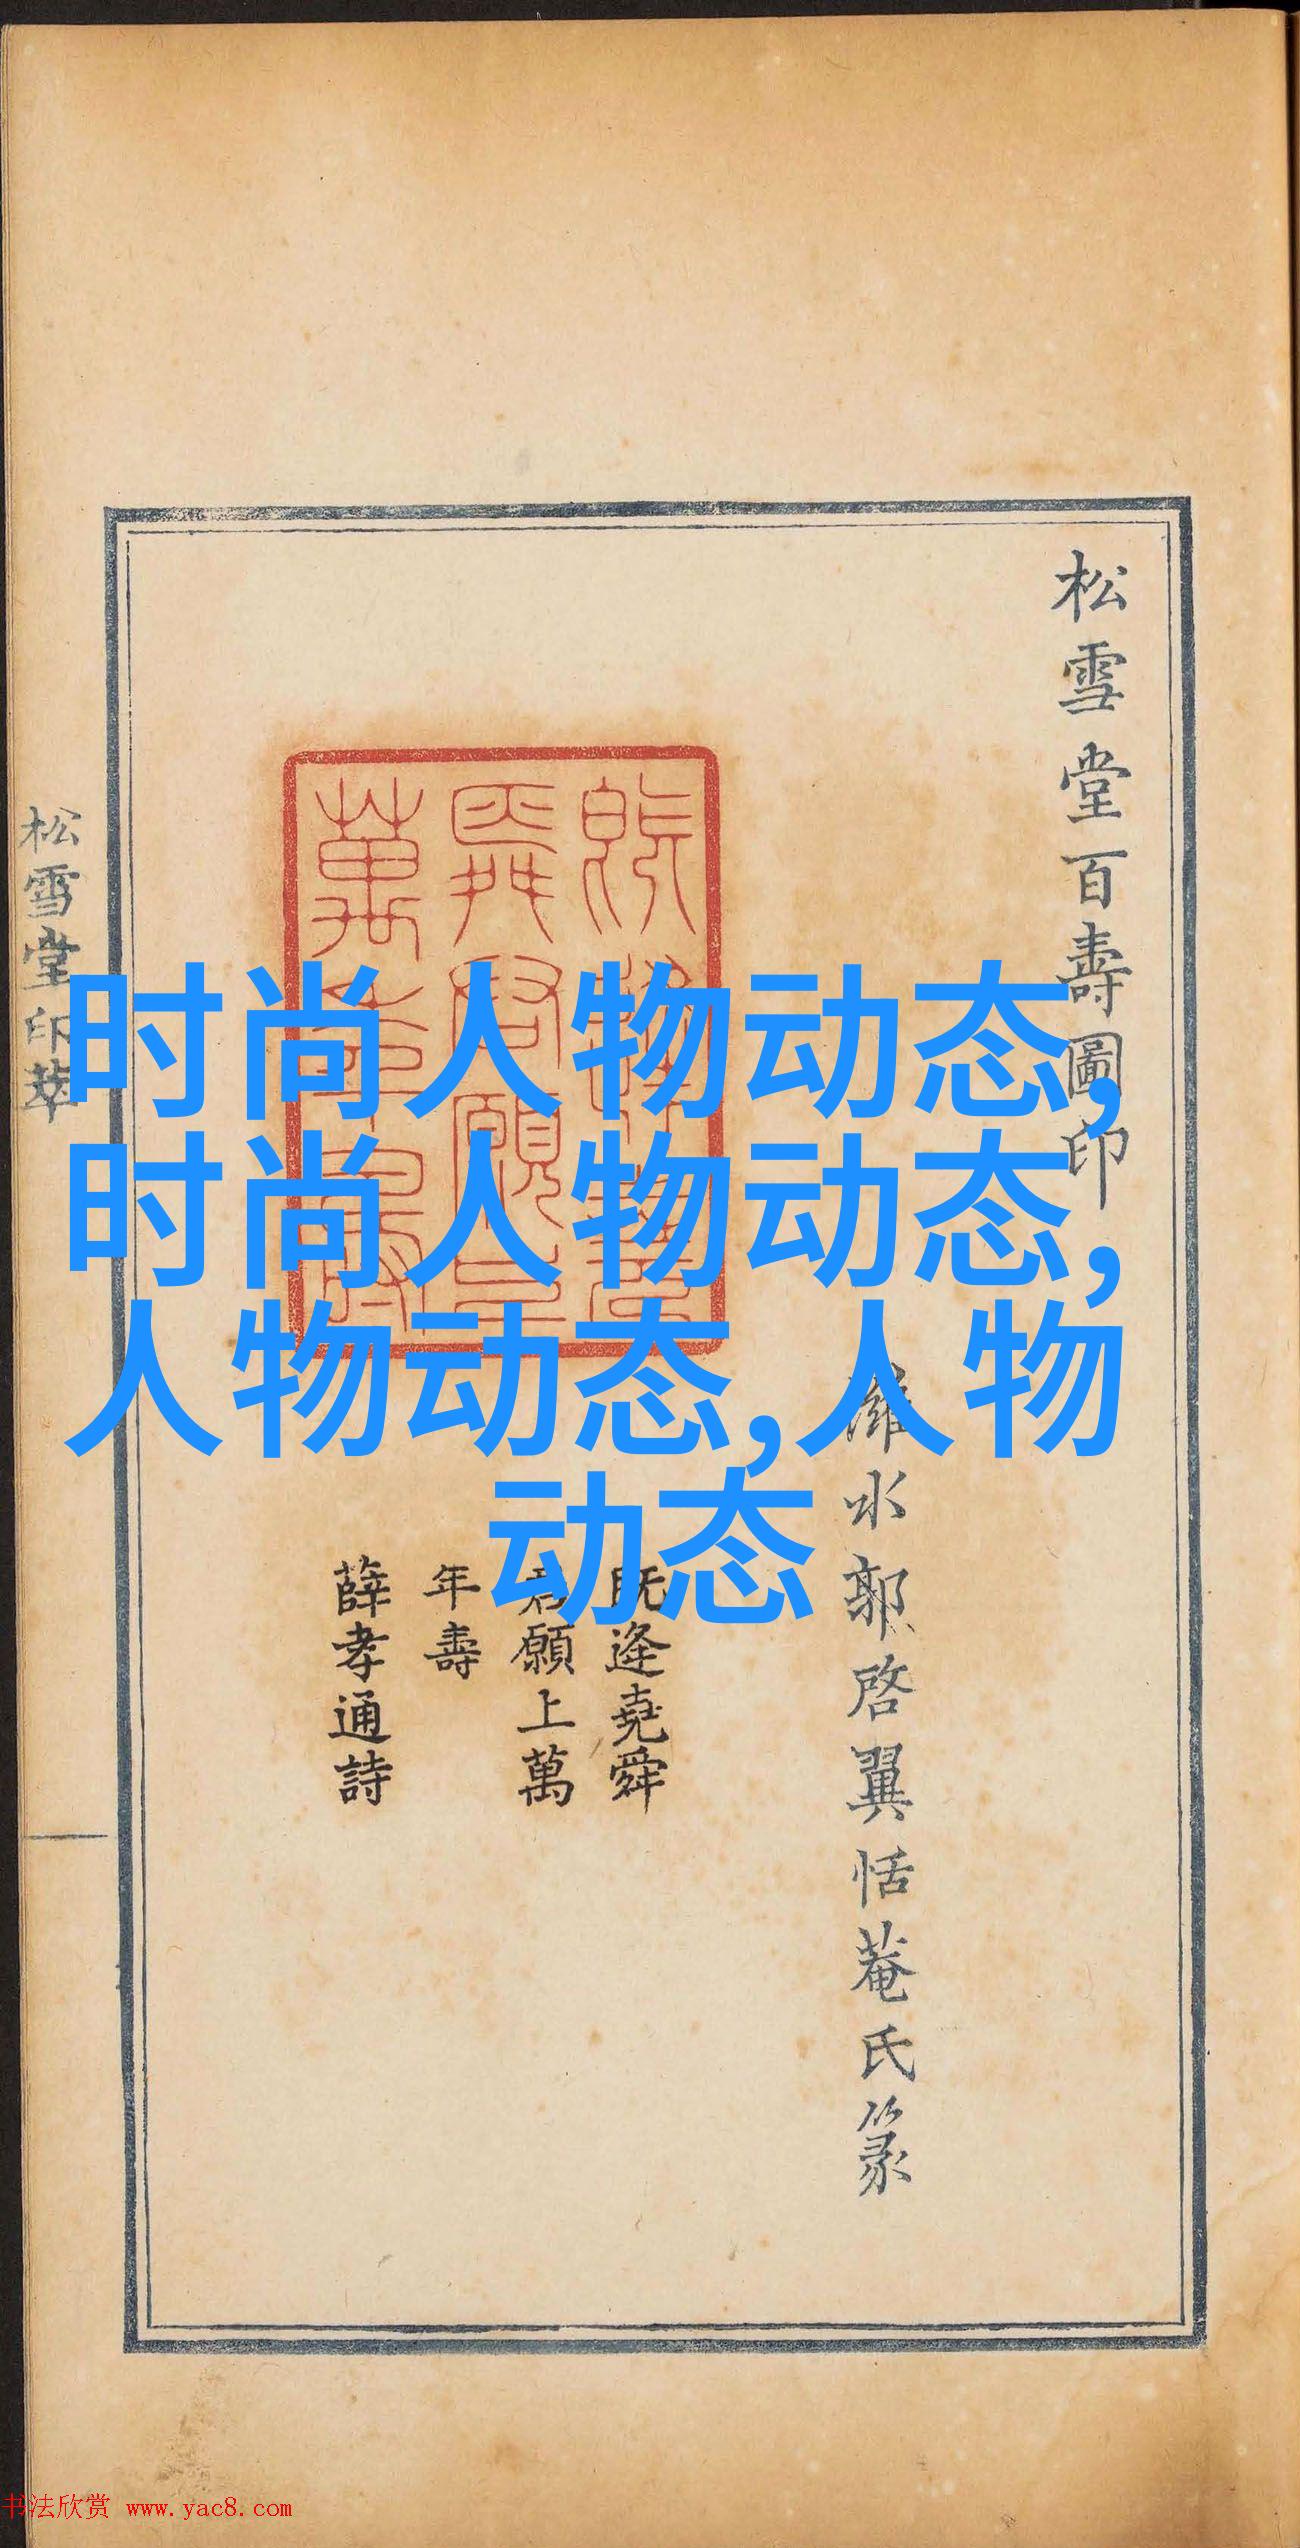 松雪堂百壽圖印
濰水郭啓翼恬菴氏篆
既逢堯舜
君願上萬
年壽
薛孝通詩
松雪堂印萃
时尚人物动态,
时尚人物动态,
人物动态,人物
动态
书法欣赏 www.yac8.com